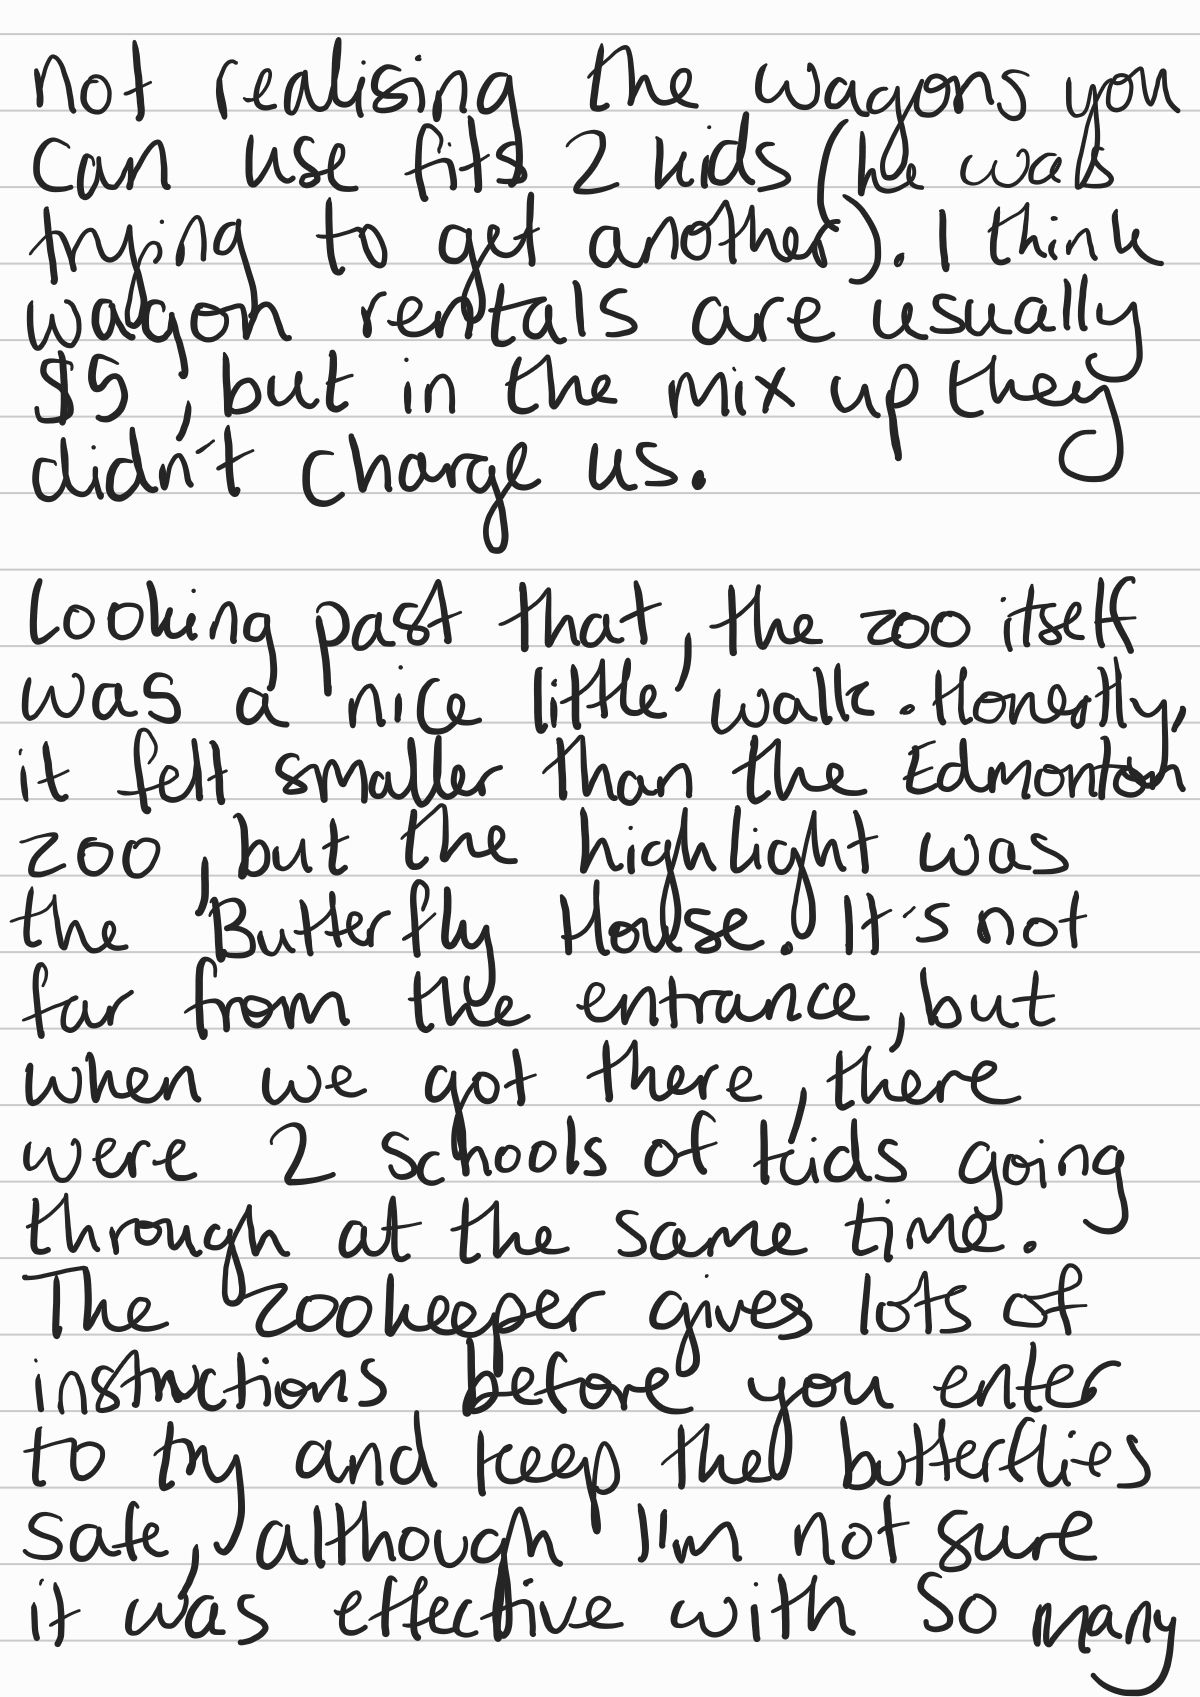 not realising the wagons you
can use fits 2 kids (he was
trying to get another). I think
wagon rentals are usually
$5, but in the mix up they
didn't charge us.
Looking past that, the zoo itself
was a nice little walk. Honestly,
it felt smaller than the Edmonton
zoo, but the highlight was
the Butterfly House. It's not
far from the entrance, but
when we got there, there
were 2 schools of kids going
through at the same time.
The zookeeper gives lots of
instructions before you enter
to try and keep the butterflies
safe, although I'm not sure
it was effective with so many